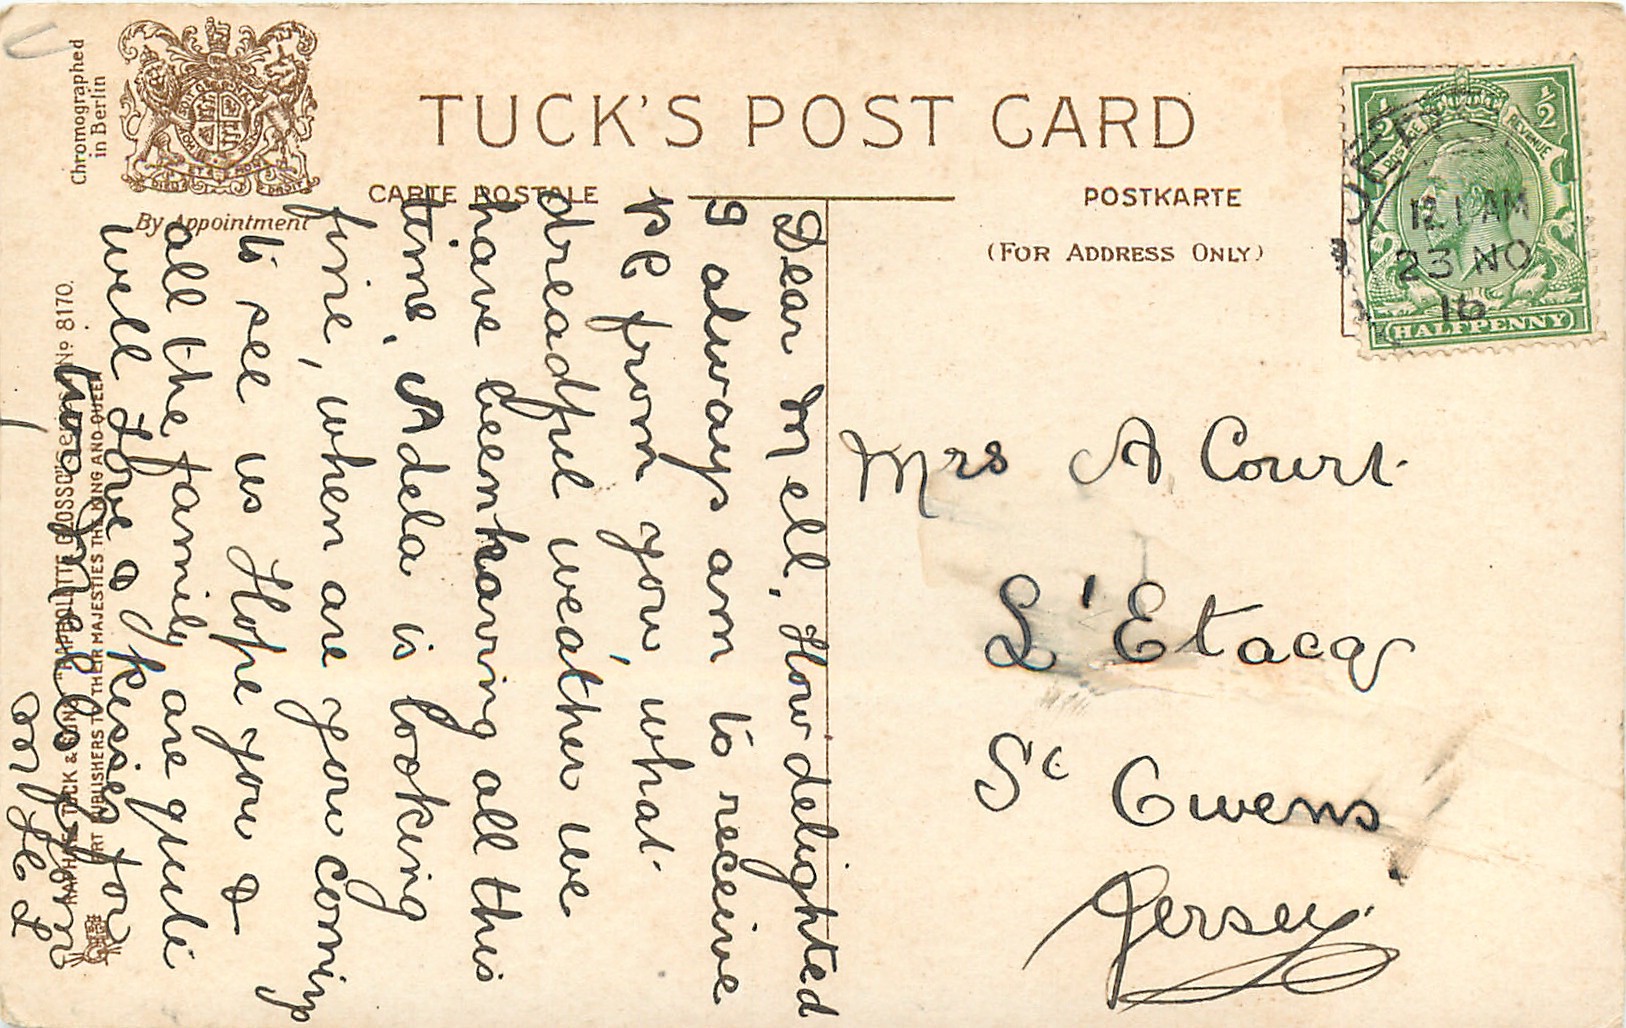 Chromographed
in Berlin
By Appointment
TUCK'S POST CARD
CARTE POSTALE
POSTKARTE
(FOR ADDRESS ONLY)
1/2 1/2
POSTAGE REVENUE
HALFPENNY
JER
12.1 AM
23 NO
16
Mrs A Court
L'Etacq
St Owens
Jersey
Dear Mell, How delighted
I always am to receive
PC from you, what
dreadful weather we
have been having all this
time, Adela is looking
fine, when are you coming
to see us Hope you &
all the family are quite
well Love & kisses for
from
RAPHAEL TUCK & SONS' "RAPHOLETTE GLOSSO" Series No 8170.
ART PUBLISHERS TO THEIR MAJESTIES THE KING AND QUEEN